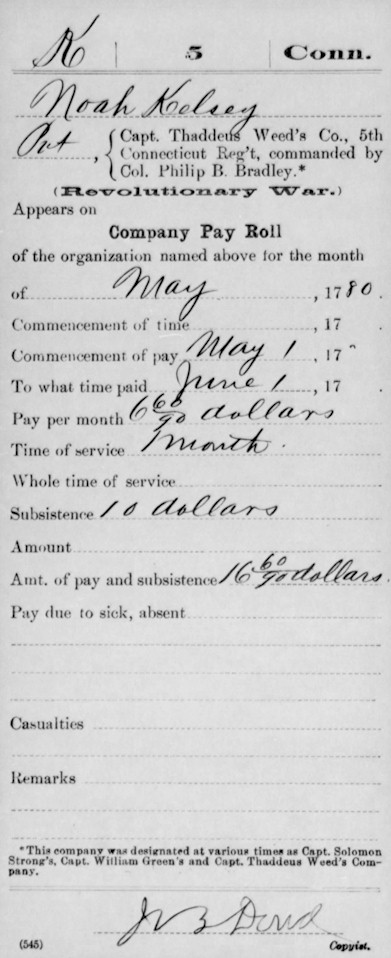 K | 5 | Conn.
Noah Kelsey
Pvt, { Capt. Thaddeus Weed's Co., 5th
Connecticut Reg't, commanded by
Col. Philip B. Bradley.*
(Revolutionary War.)
Appears on
Company Pay Roll
of the organization named above for the month
of May, 1780.
Commencement of time, 17
Commencement of pay May 1, 17"
To what time paid June 1, 17
Pay per month 6 60/90 dollars
Time of service 1 month.
Whole time of service
Subsistence 10 dollars
Amount
Amt. of pay and subsistence 16 60/90 dollars.
Pay due to sick, absent
Casualties
Remarks
*This company was designated at various times as Capt. Solomon
Strong's, Capt. William Green's and Capt. Thaddeus Weed's Com-
pany.
(545) Copyist.